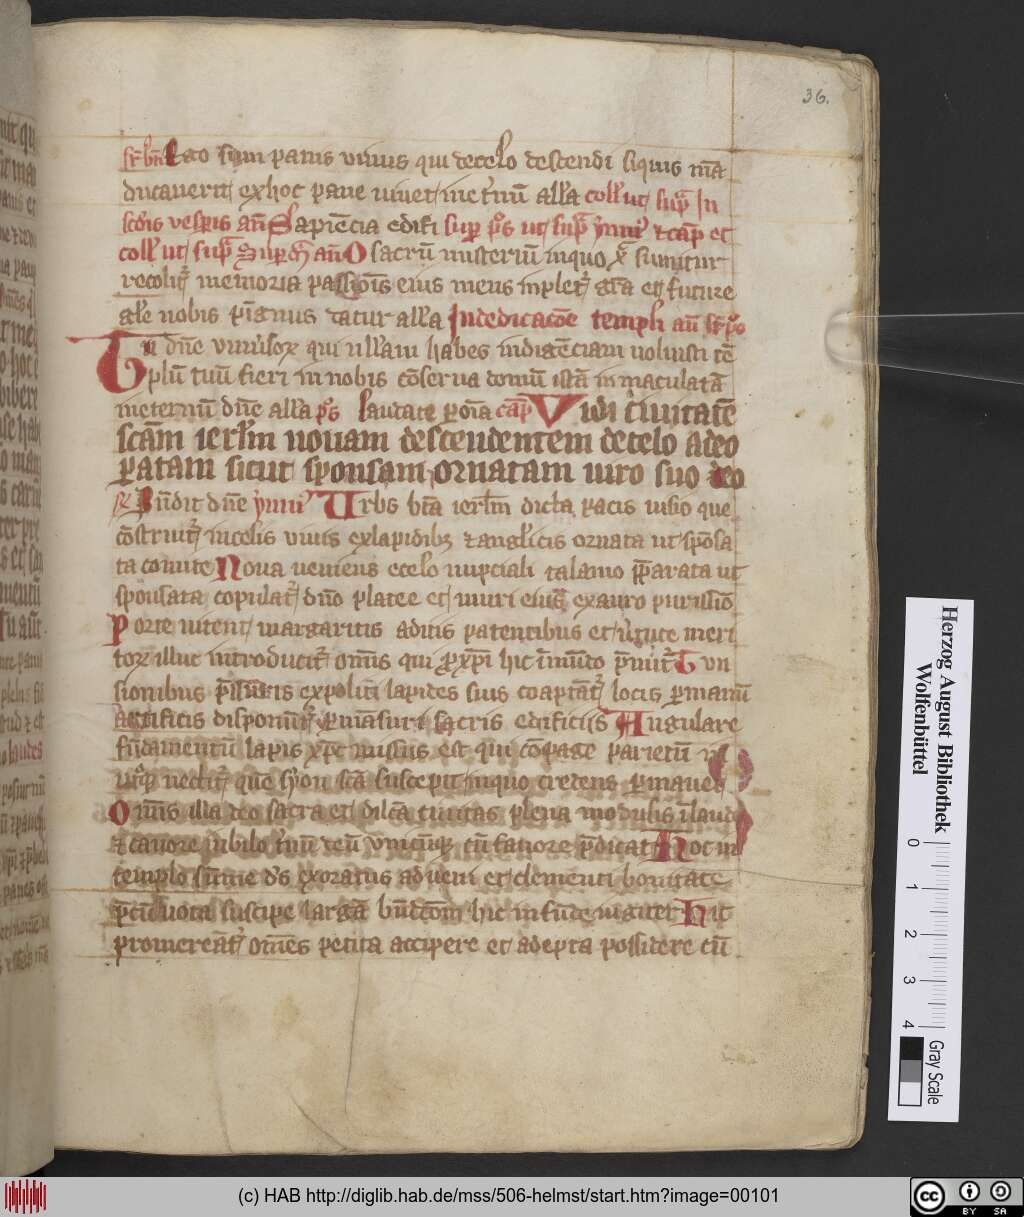 36.
Ego sum panis viuus qui decelo descendi siquis mā
ducauerit exhoc pane viuet inet'nū all'a coll'ut sup̄ In
scd'is vesp̄is an̄ Sapiēcia edifi sup̄ ps̄ ut sup̄ ymn' et cap̄ et
coll' ut sup̄ Sup̄ an̄ O sacrū misteriū inquo xp̄ sumitur
recolit' memoria passiōis eius mens inplet' gr̄a et future
gl'e nobis pignus datur all'a Indedicacōe templi an̄ sr̄ ps̄
Tu dn̄e vniu'soꝝ qui nullam habes indigēciam uoluisti tē
plū tuū fieri in nobis cōserua domū istā inmaculatā
ineternū dn̄e all'a ps̄ Laudate p oīa cap̄ Vidi ciuitatē
scām ierl'm nouam descendentem decelo adeo
paratam sicut sponsam ornatam uiro suo deo
Bn̄dic dn̄e ymn' Urbs bt̄a ierl'm dicta pacis uisio que
cōstruit' incelis viuis exlapidib; et angl'icis ornata ut spōsa
ta comite Noua ueniens ecelo nupciali talamo p̄parata ut
sponsata copulat' dn̄o platee et muri eius exauro purissīo
Porte nitent margaritis aditis patentibus et u'tute meri
toꝝ illuc introducit' omīs qui p xp̄i hic ī mūdo p̄mit' Tun
sionibus p̄ssuris expoliti lapides suis coaptāt' locis p manū
artificis disponunt' p māsuri sacris edificiis Angulare
fūdamentū lapis xp̄c missus est qui cōpage parietū in
ut'q; nectit' que syon scā suscepit inquo credens p manet
Omīs illa deo sacra et dilcā ciuitas plena modulis ī laude
et canore iubilo t'nū deū vnicūq; cū fauore p̄dicat Hoc in
templo sūme d's exoratus adueni et clementi bonitate
p̄cū uota suscipe largā bn̄dcōm hic infūde iugiter Hic
promereāt' omēs petita accipere et adepta possidere cū
Herzog August Bibliothek
Wolfenbüttel
0 1 2 3 4
Gray Scale
(c) HAB http://diglib.hab.de/mss/506-helmst/start.htm?image=00101
cc BY SA